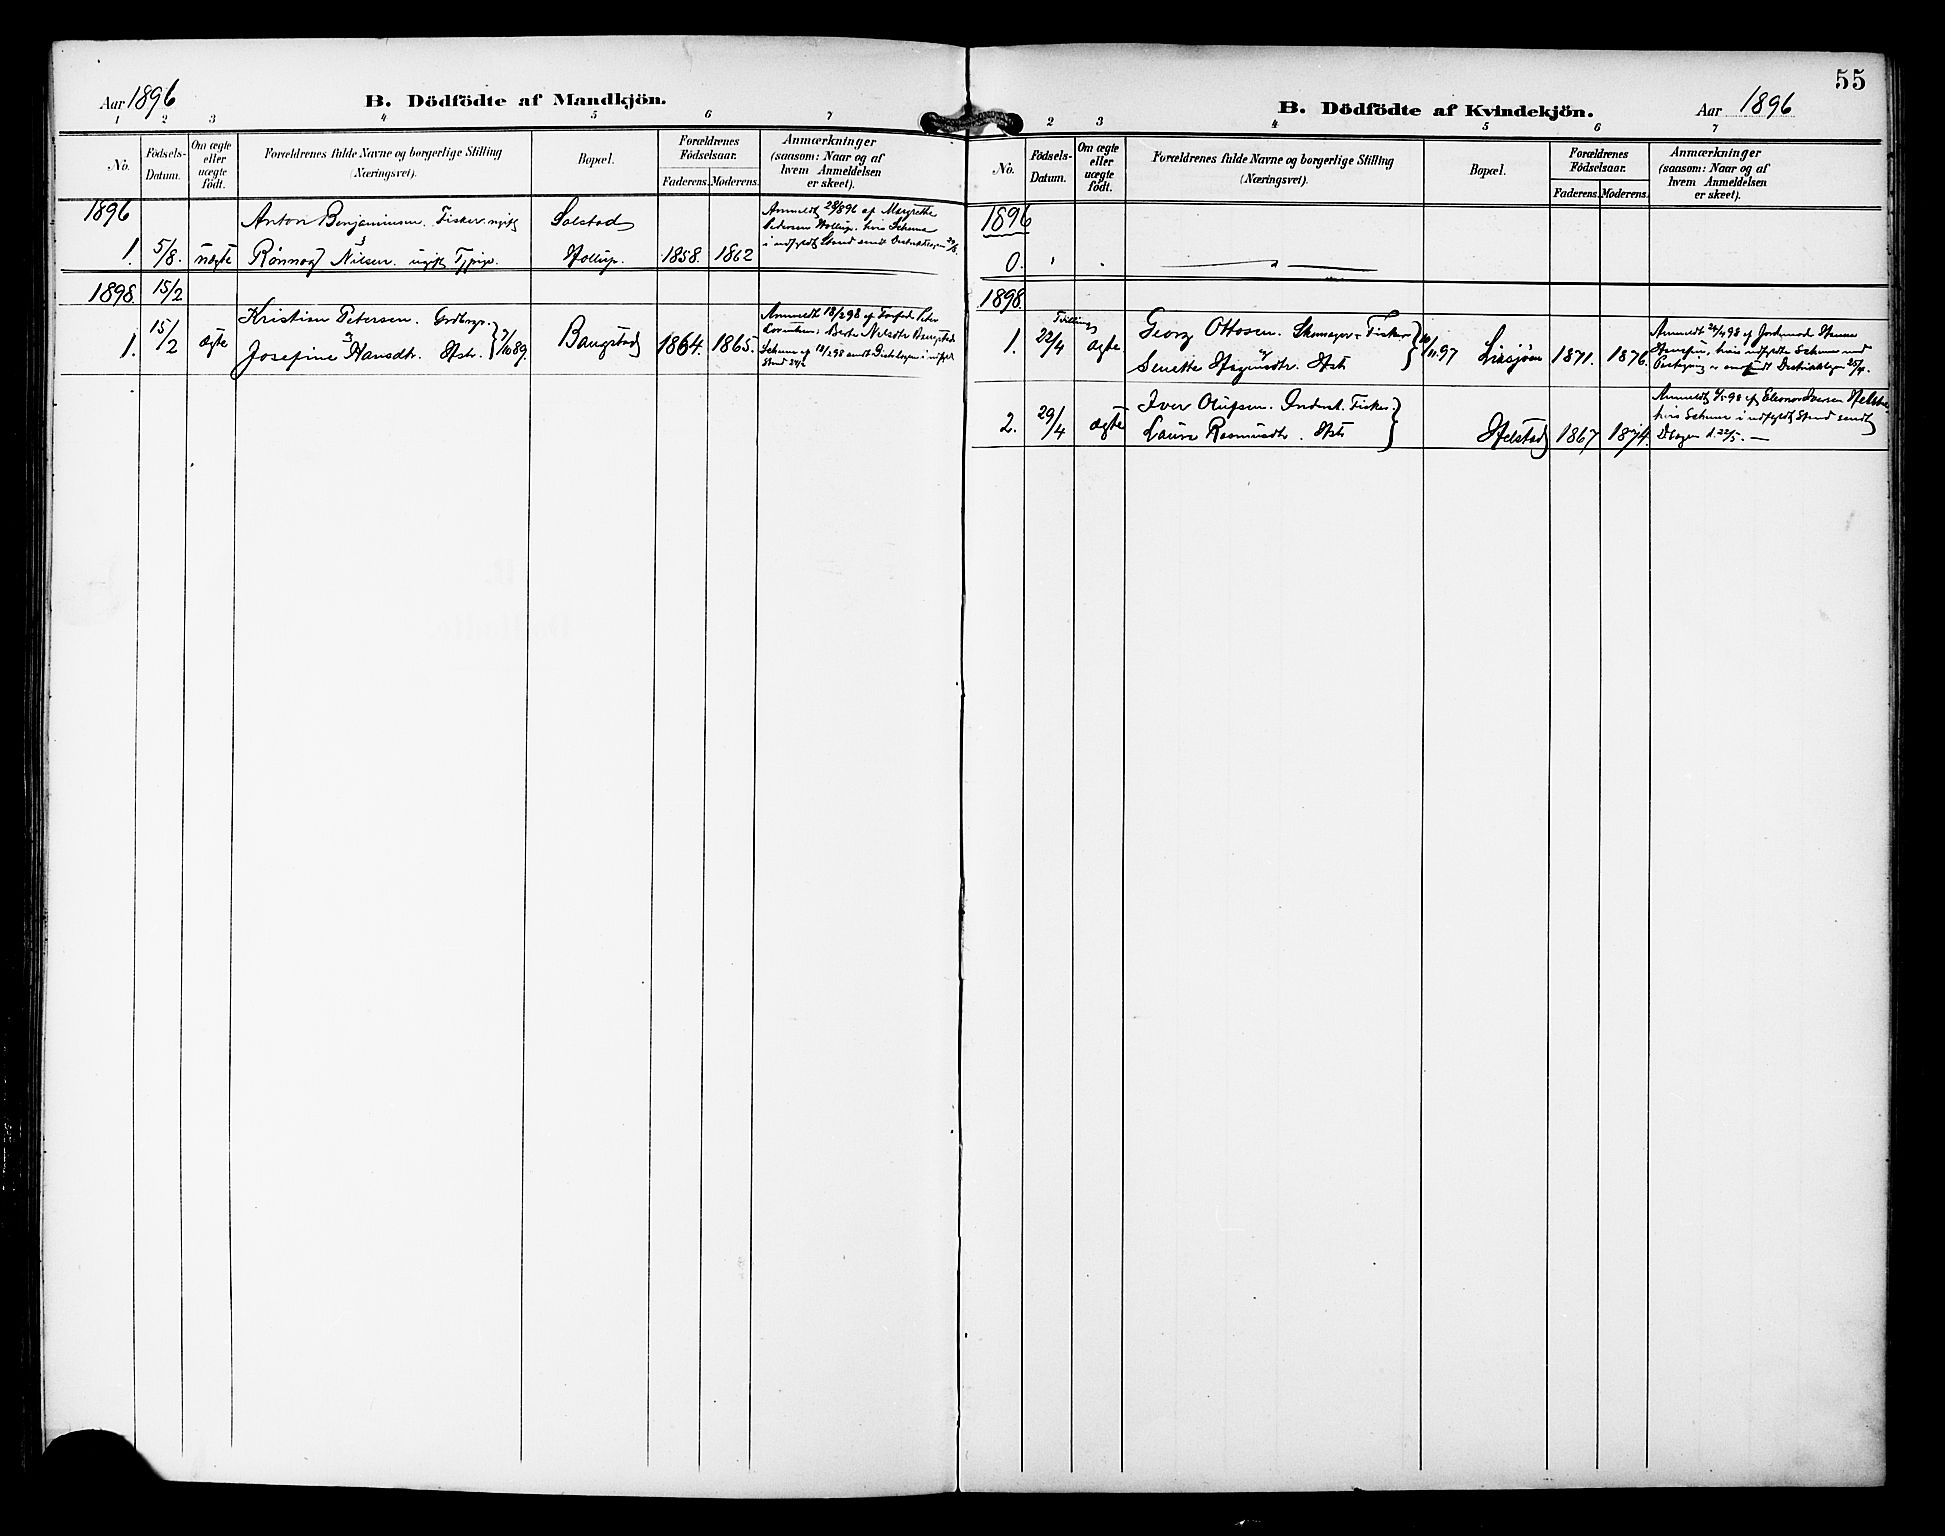 55
Aar 1896
B. Dödfödte af Mandkjön.
1 2 3 4 5 6 7
No.
Födsels-
Datum.
Om ægte
eller
uægte
födt.
Forældrenes fulde Navne og borgerlige Stilling
(Næringsvei).
Bopæl.
Forældrenes
Födselsaar.
Faderens. Moderens.
Anmærkninger
(saasom: Naar og af
hvem Anmeldelsen
er skeet).
1896
Anton Benjaminsen. Fisker ugift
Solstad
Anmeldt 28/8 96 af Margrethe
Pedersen Hollup, hvis Schema
i udfyldt Stand sendt
1. 5/8. uægte Rønnog Nilsen. ugift Tjpige. Hollup. 1858. 1862
1898. 15/2
Kristian Petersen. Grdbrgr.
Anmeldt 18/2 98 af
1. 15/2 ægte Josefine Hansdtr. Hstr. 9/10 89. Bangstad 1864. 1865.
Schema af 18/2 98 sendt
Stand 24/2
B. Dödfödte af Kvindekjön.
Aar 1896
2 3 4 5 6 7
No.
Födsels-
Datum.
Om ægte
eller
uægte
födt.
Forældrenes fulde Navne og borgerlige Stilling
(Næringsvei).
Bopæl.
Forældrenes
Födselsaar.
Faderens. Moderens.
Anmærkninger
(saasom: Naar og af
hvem Anmeldelsen
er skeet).
1896
0. " "
1898.
Tvilling
Georg Ottosen. Skomager - Fisker
Anmeldt 24/4 98 af Jordemod
1. 22/4 ægte Senette Hst. 97 1871. 1876.
hvis udfyldte Schema med
Distriktslægen 25/4.
Iver Olufsen. Inderst. Fisker.
Anmeldt 98 af Eleonor Iversen Helstad
hvis Schema i udfyldt Stand sendt
2. 29/4 ægte Laura Rasmusdtr. Hst. Helstad 1867 1874.
Dlægen d. 22/5. —